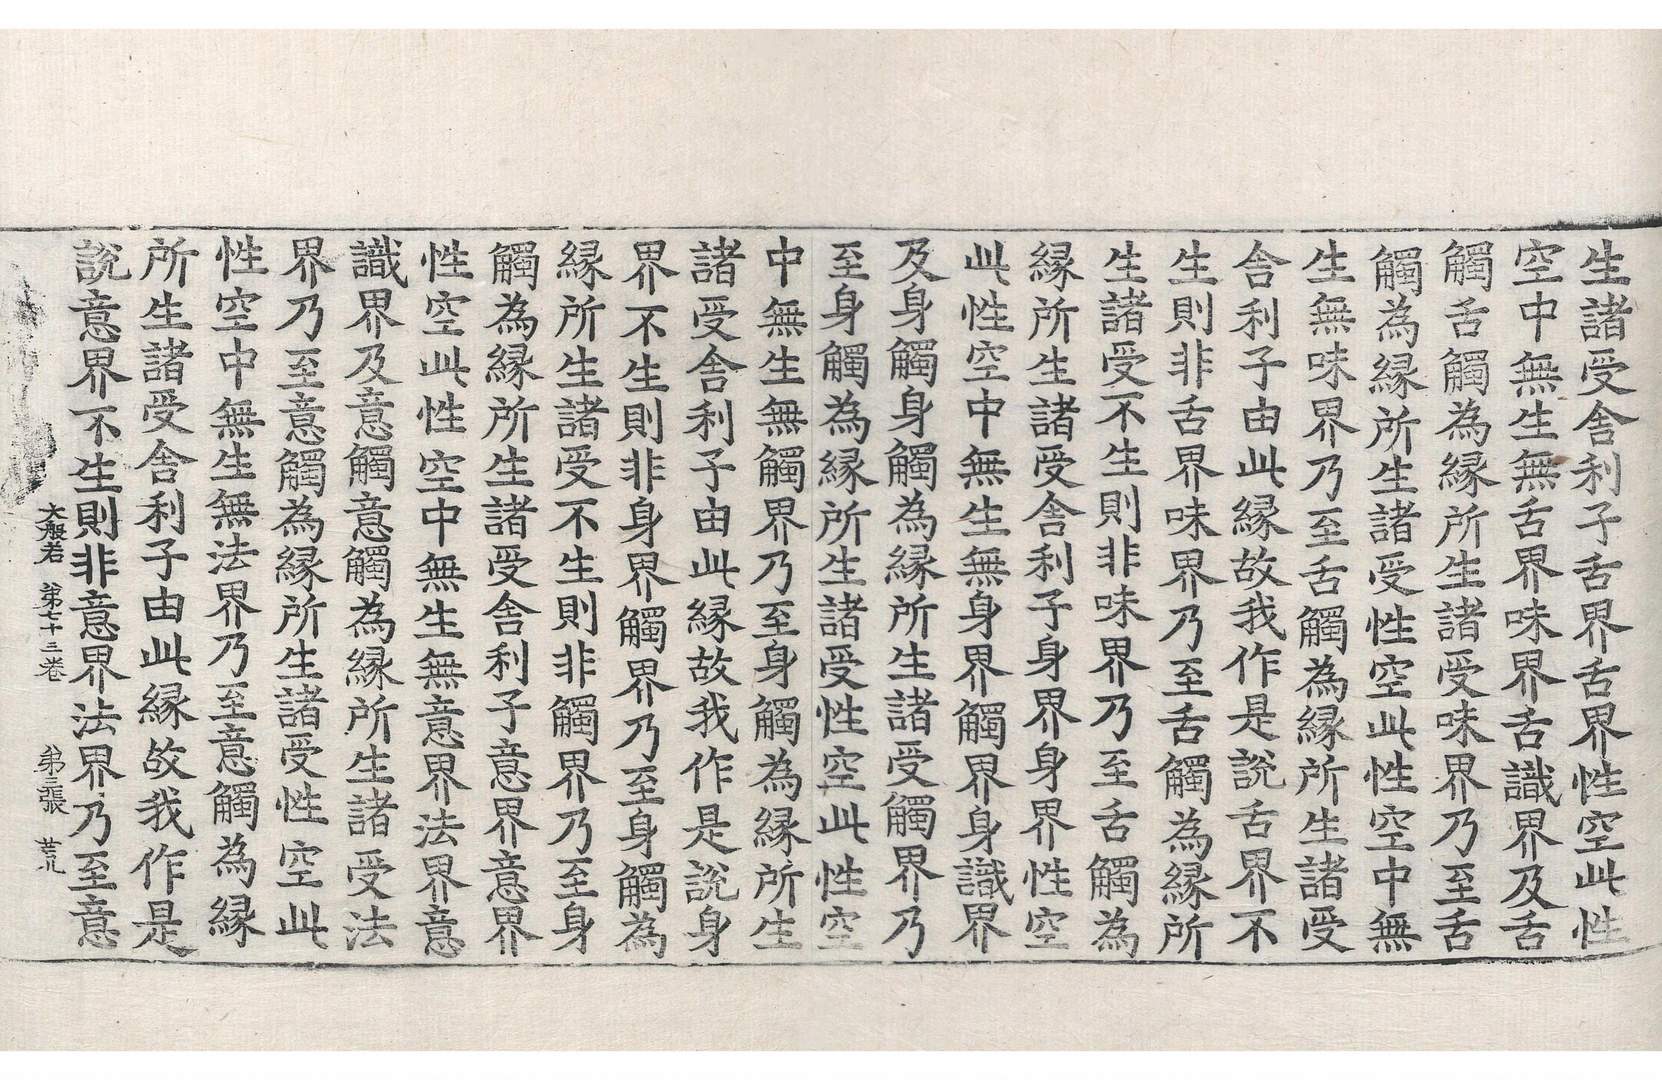 生諸受舍利子舌界舌界性空此性
空中無生無舌界味界舌識界及舌
觸舌觸為縁所生諸受味界乃至舌
觸為縁所生諸受性空此性空中無
生無味界乃至舌觸為縁所生諸受
舍利子由此縁故我作是說舌界不
生則非舌界味界乃至舌觸為縁所
生諸受不生則非味界乃至舌觸為
縁所生諸受舍利子身界身界性空
此性空中無生無身界觸界身識界
及身觸身觸為縁所生諸受觸界乃
至身觸為縁所生諸受性空此性空
中無生無觸界乃至身觸為縁所生
諸受舍利子由此縁故我作是說身
界不生則非身界觸界乃至身觸為
縁所生諸受不生則非觸界乃至身
觸為縁所生諸受舍利子意界意界
性空此性空中無生無意界法界意
識界及意觸意觸為縁所生諸受法
界乃至意觸為縁所生諸受性空此
性空中無生無法界乃至意觸為縁
所生諸受舍利子由此縁故我作是
說意界不生則非意界法界乃至意
大般若 第七十三卷 第三張